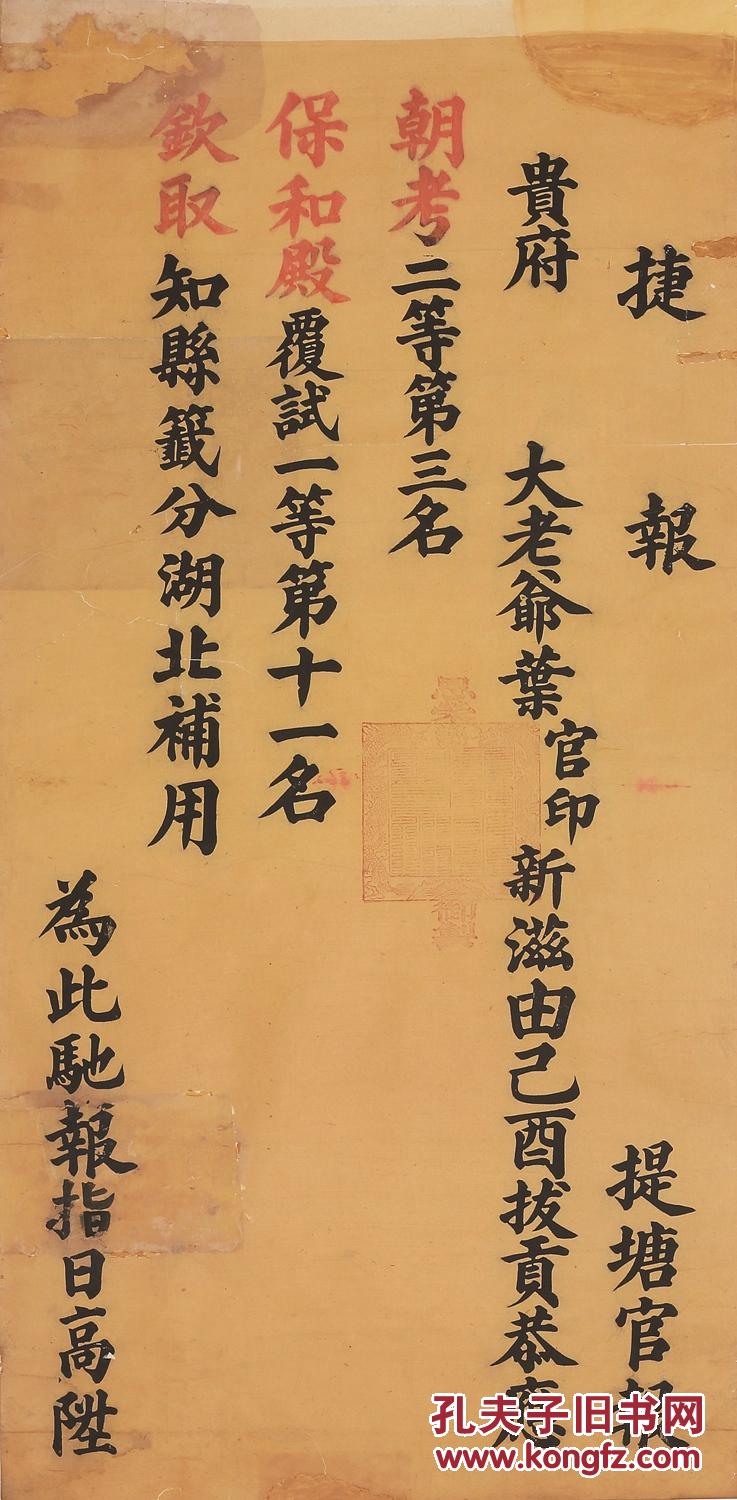 捷報 提塘官報
貴府 大老爺葉官印新滋由己酉拔貢恭應
朝考二等第三名
保和殿覆試一等第十一名
欽取知縣籤分湖北補用
為此馳報指日高陞
孔夫子旧书网
www.kongfz.com